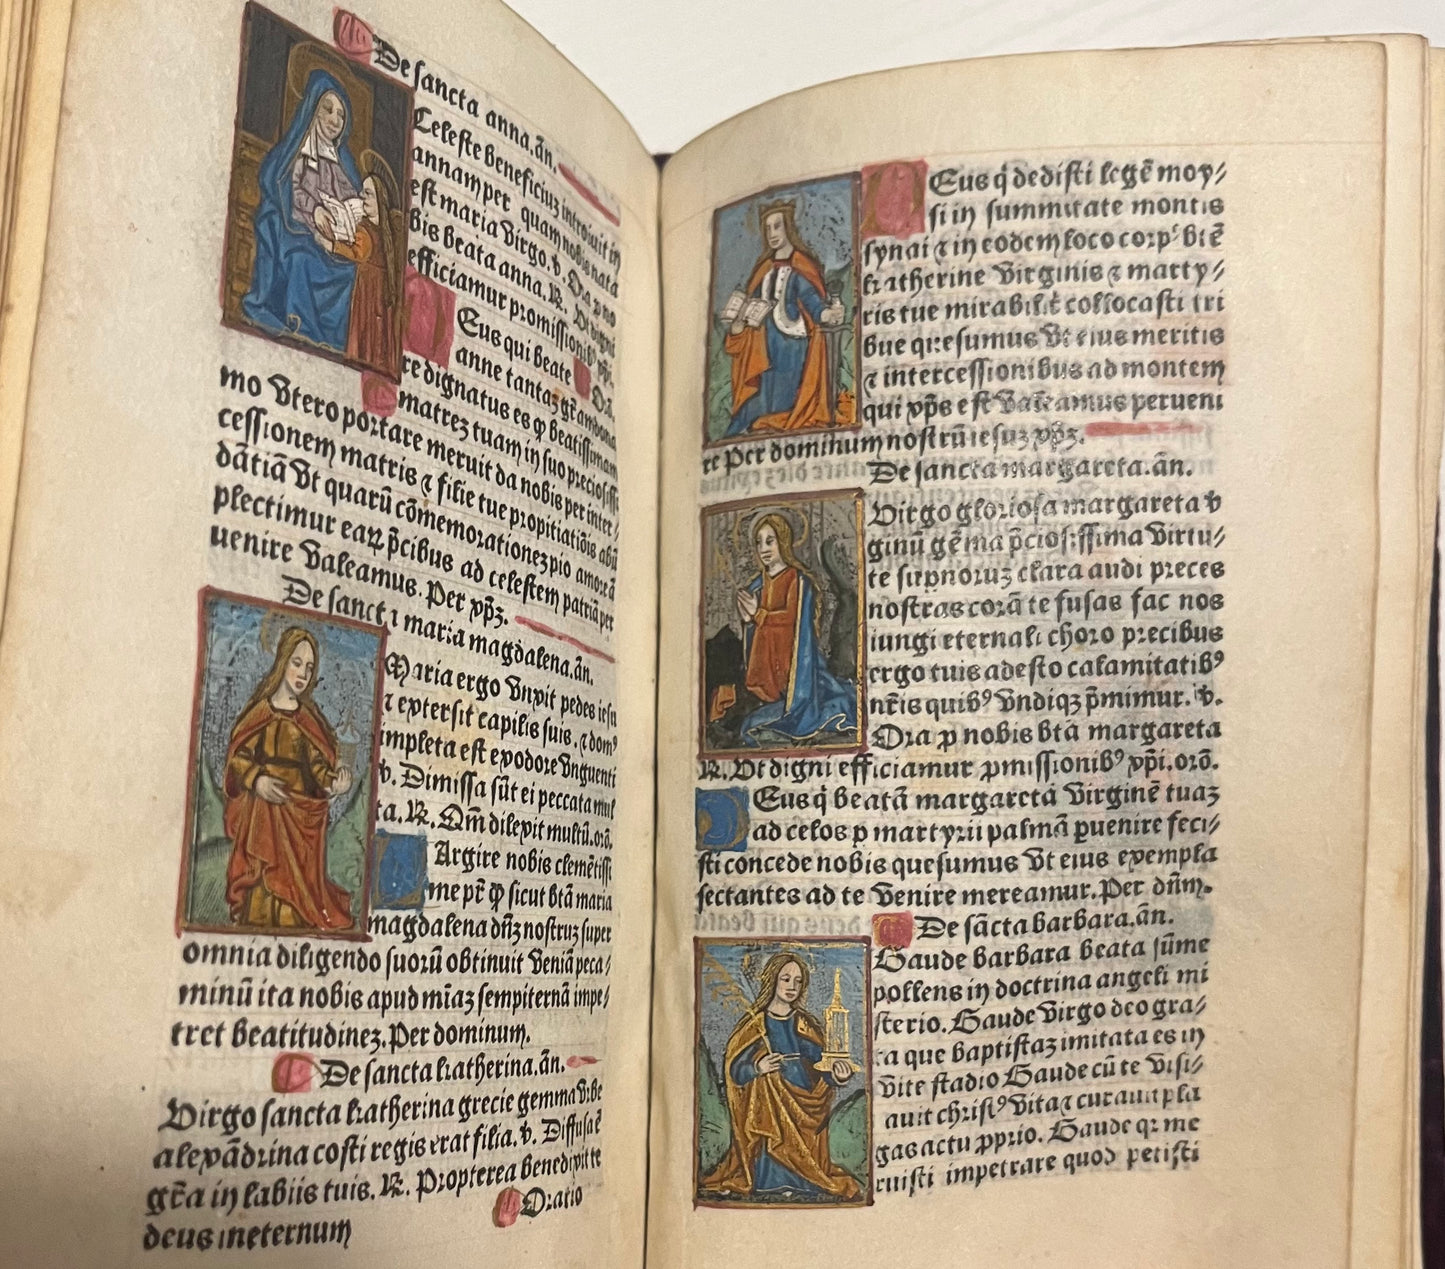 De sancta anna. añ.
Celeste beneficiuz introiuit in
annam per quam nobis nata
est maria virgo. v. Ora p no
bis beata anna. R. Vt digni
efficiamur promissionibꝰ xp̄i.
Orō.
Deus qui beate
anne tantaz gr̄am dona
re dignatus es ꝙ beatissimam
matrez tuam in suo preciosissi
mo vtero portare meruit da nobis per inter/
cessionem matris ⁊ filie tue propitiatiōis abū
dātiā vt quarū cōmemorationez pio amore ā
plectimur earꝝ p̄cibus ad celestem patriā per
uenire valeamus. Per xp̄z.
De sancta maria magdalena. añ.
Maria ergo vnxit pedes iesu
⁊ extersit capilis suis. ⁊ domꝰ
impleta est ex odore vnguenti
v. Dimissa sūt ei peccata mul
ta. R. Qm̄ dilexit multū. orō.
Largire nobis clemētissi
me pr̄ ꝙ sicut btā maria
magdalena dn̄z nostruz super
omnia diligendo suorū obtinuit veniā peca/
minū ita nobis apud m̄iaz sempiternā impe/
tret beatitudinez. Per dominum.
De sancta katherina. añ.
Virgo sancta katherina grecie gemma vrbe
alexādrina costi regis erat filia. v. Diffusa ē
gr̄a in labiis tuis. R. Propterea benedixit te
deus in eternum Oratio
Deus q̇ dedisti legē moy/
si in summitate montis
synai ⁊ in eodem loco corpꝰ btē
katherine virginis ⁊ marty/
ris tue mirabilit̄ collocasti tri
bue quesumus vt eius meritis
⁊ intercessionibus ad montem
qui xp̄s est valeamus perueni
re Per dominum nostrū iesuz xp̄z.
De sancta margareta. añ.
Virgo gloriosa margareta v
ginū gēma p̄ciosissima virtu/
te supnoruz clara audi preces
nostras corā te fusas fac nos
iungi eternali choro precibus
ergo tuis adesto calamitatibꝰ
nr̄is quibꝰ vndiqꝫ p̄mimur. v.
Ora p nobis btā margareta
R. Vt digni efficiamur pmissionibꝰ xp̄i. orō.
Deus q̇ beatā margaretā virginē tuaz
ad celos p martyrii palmā peruenire feci/
sti concede nobis quesumus vt eius exempla
sectantes ad te venire mereamur. Per dn̄m.
De sācta barbara. añ.
Gaude barbara beata sūme
pollens in doctrina angeli mi
sterio. Gaude virgo deo gra/
ta que baptistaz imitata es in
vite stadio Gaude cū te visi/
auit christꝰ vita ⁊ curauit pla
gas actu pprio. Gaude qr me
ruisti impetrare quod petisti